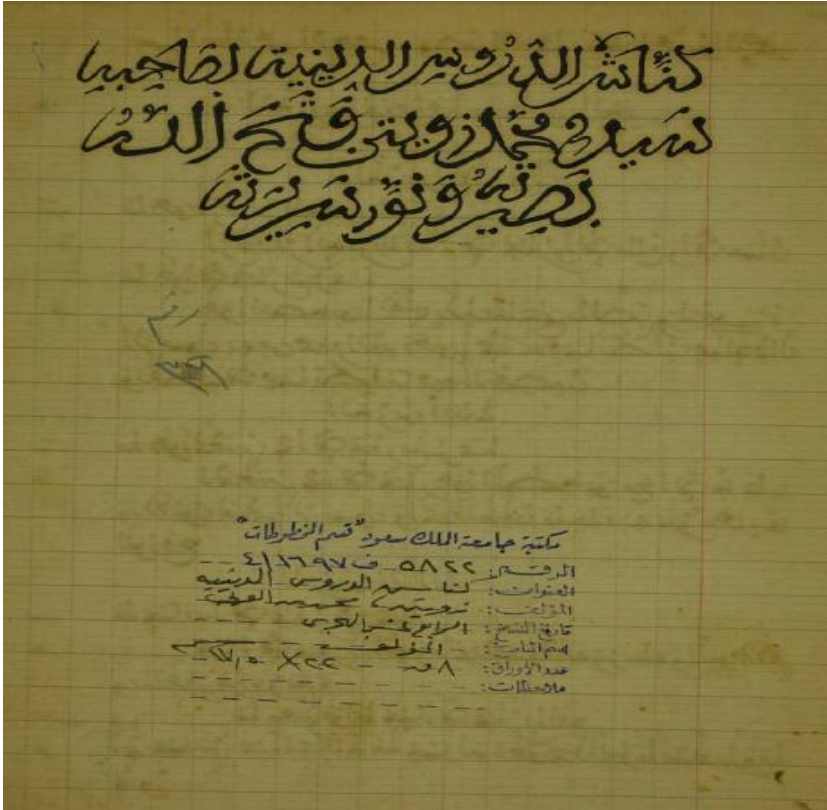 كنَّاش الدُّرُوسِ الدينية لصاحبها
سيدي محمد زويتن فَتَحَ اللهُ
بَصِيرته وَنَوَّرَ سَرِيرتَهُ
رقم
مكتبة جامعة الملك سعود "قسم المخطوطات"
الرقم: ٥٨٢٢ ف ١٦٩٧/٤
العنوان: كناش الدروس الدينية
المؤلف: زويتن، محمد
تاريخ النسخ: الرابع عشر الهجري
اسم الناسخ: المؤلف
عدد الأوراق: ٨ ق - ٢٢ × ١٧,٥ سم
ملاحظات: